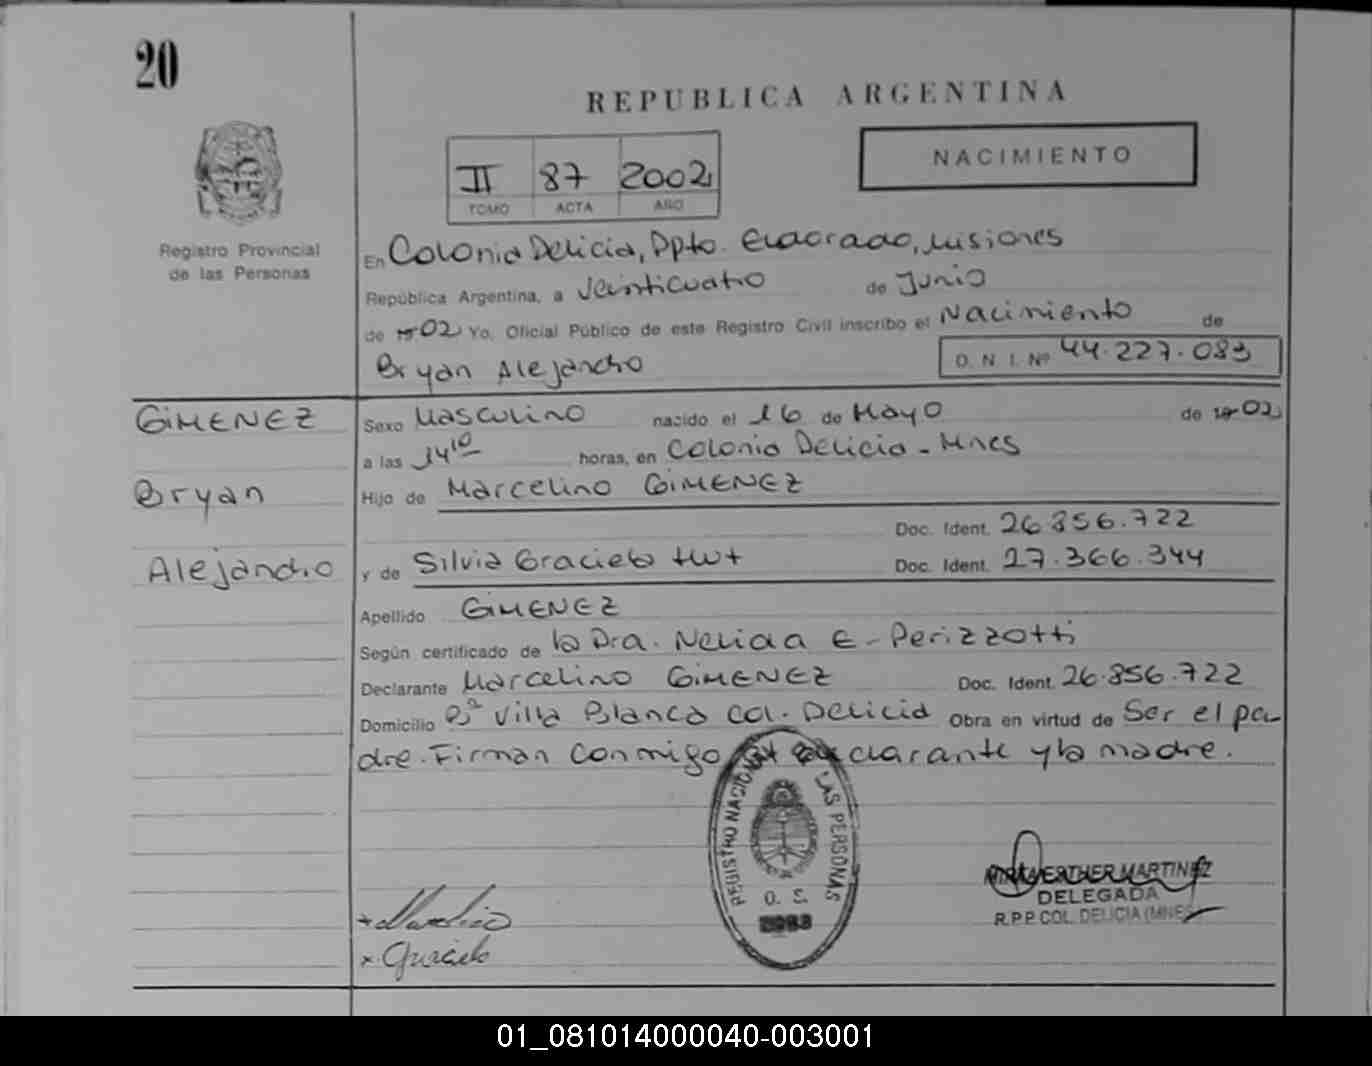 20
REPUBLICA ARGENTINA
NACIMIENTO
II 87 2002
TOMO ACTA AÑO
Registro Provincial
de las Personas
En Colonia Delicia, Dpto. Eldorado, Misiones
República Argentina, a veinticuatro de Junio
de 19 02 Yo, Oficial Público de este Registro Civil inscribo el Nacimiento de
Bryan Alejandro D. N. I. Nº 44.227.083
GIMENEZ
Bryan
Alejandro
Sexo Masculino nacido el 16 de Mayo de 19 02
a las 14 10 horas, en Colonia Delicia - Mnes
Hijo de Marcelino GIMENEZ
Doc. Ident. 26.856.722
y de Silvia Graciela Doc. Ident. 27.366.344
Apellido GIMENEZ
Según certificado de la Dra. Nelida E. Perizzotti
Declarante Marcelino GIMENEZ Doc. Ident. 26.856.722
Domicilio Bº Villa Blanca Col. Delicia Obra en virtud de Ser el pa-
dre. Firman conmigo clarante y la madre.
REGISTRO NACIONAL LAS PERSONAS
O. S.
MARTINEZ
DELEGADA
R.P.P. COL. DELICIA (MNES
x Marcelino
x Graciela
01_081014000040-003001